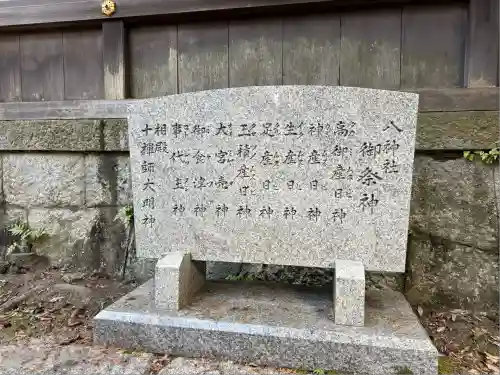 八神社
御祭神
高御産日神
神産日神
生産日神
足産日神
玉積産日神
大宮売神
御食津神
事代主神
相殿
十禪師大明神